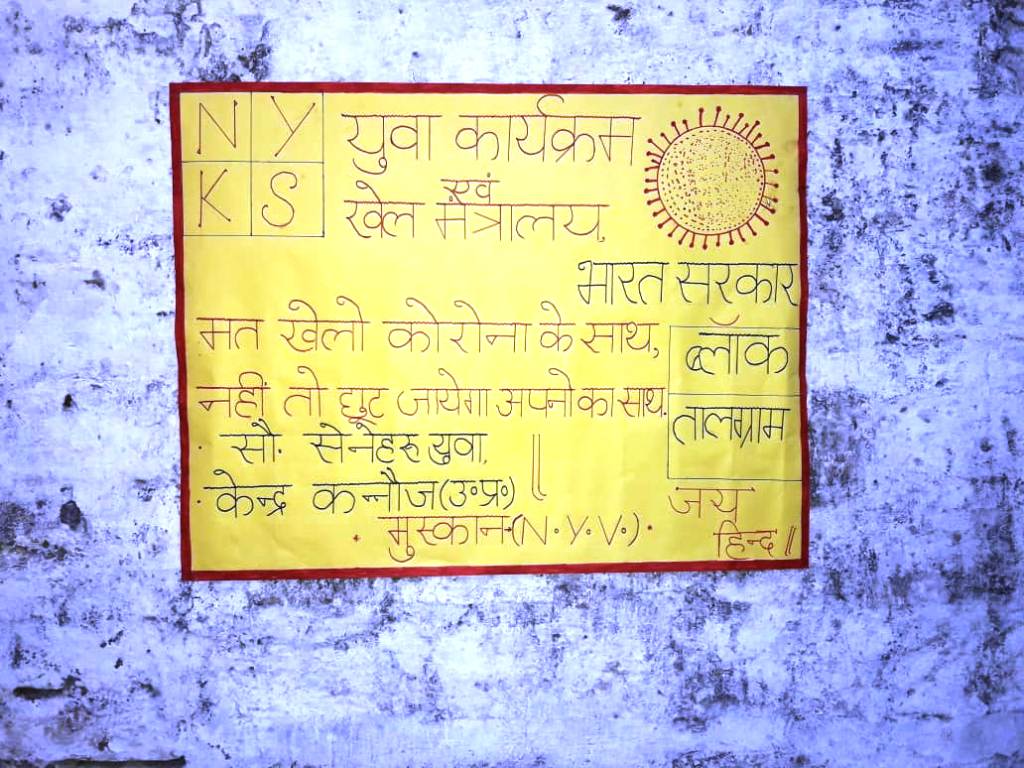 N Y
K S
युवा कार्यक्रम
एवं
खेल मंत्रालय,
भारत सरकार
मत खेलो कोरोना के साथ,
नहीं तो छूट जायेगा अपनो का साथ.
ब्लॉक
तालग्राम
· सौ. से नेहरू युवा, ||
· केन्द्र कन्नौज (उ॰प्र॰)
· मुस्कान (N.Y.V.) ·
जय
हिन्द ||